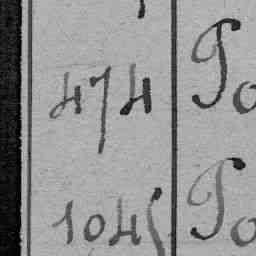 474 Po
1045 Po